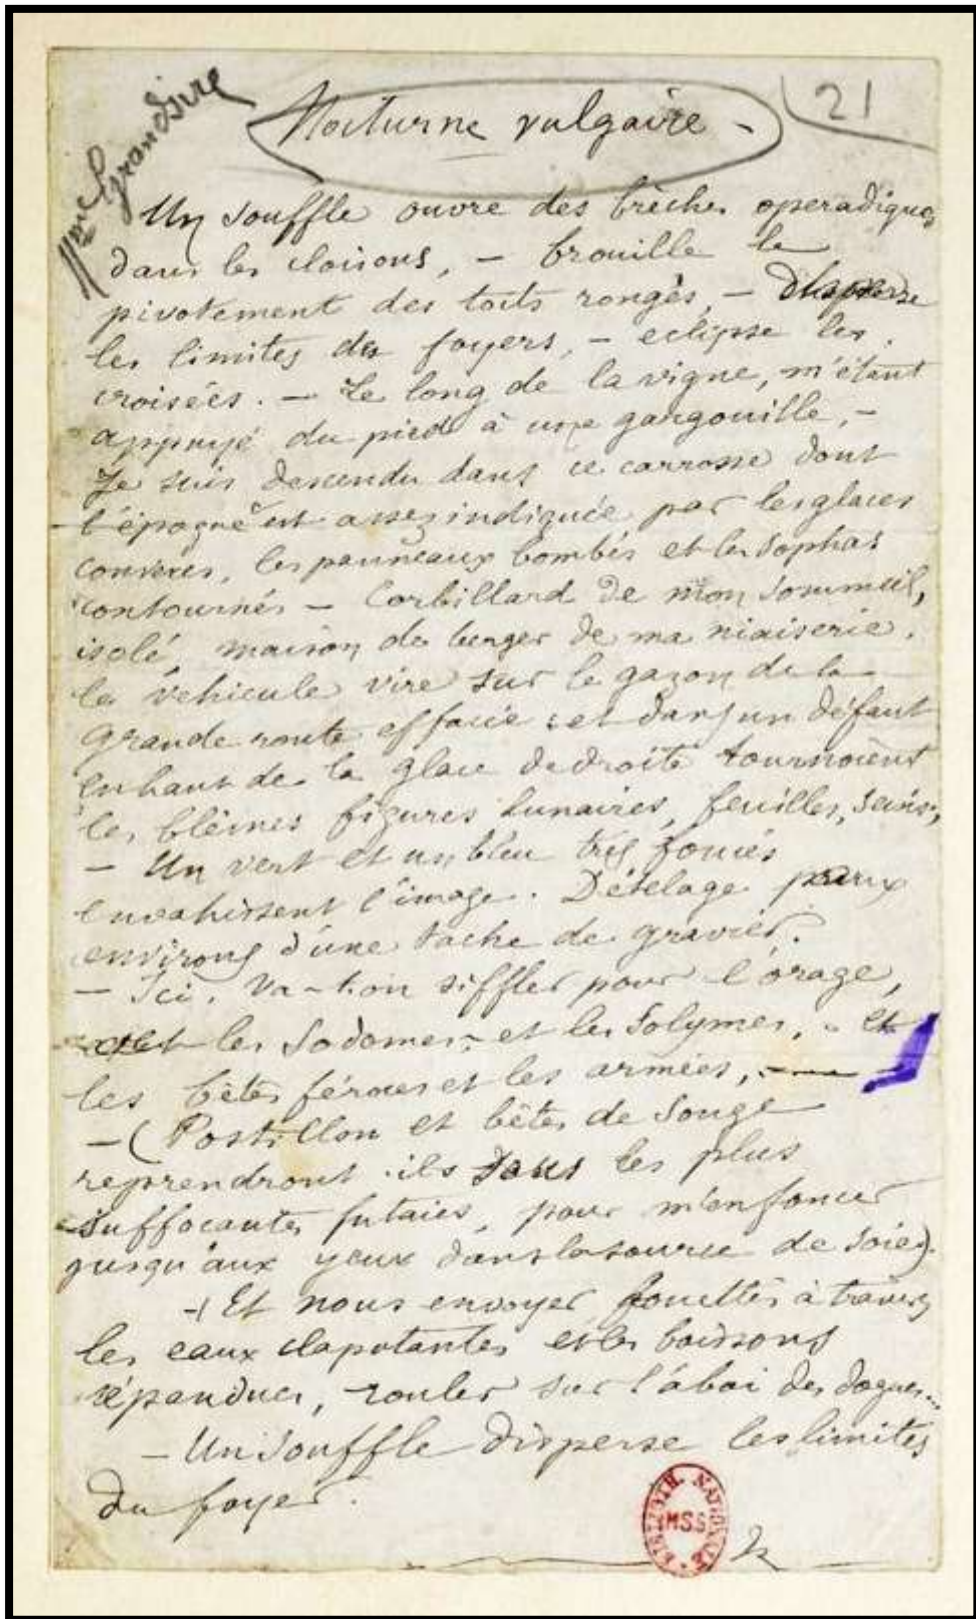 Mme Grandsire
Nocturne vulgaire -
21
Un souffle ouvre des brèches operadiques
dans les cloisons, – brouille le
pivotement des toits rongés, – disperse
les limites des foyers, – eclipse les
croisées. – Le long de la vigne, m'étant
appuyé du pied à une gargouille, –
Je suis descendu dans ce carrosse dont
l'époque est assez indiquée par les glaces
convexes, les panneaux bombés et les sophas
contournés – Corbillard de mon sommeil,
isolé, maison de berger de ma niaiserie,
le vehicule vire sur le gazon de la
grande route effacée : et dans un défaut
en haut de la glace de droite tournoient
les blêmes figures lunaires, feuilles, seins;
– Un vert et un bleu très foncés
envahissent l'image. Dételage aux
environs d'une tache de gravier.
– Ici, va-t-on siffler pour l'orage,
et les Sodomes, – et les Solymes, – et
les bêtes féroces et les armées, –
– (Postillon et bêtes de songe
reprendront-ils sous les plus
suffocantes futaies, pour m'enfoncer
jusqu'aux yeux dans la source de soie).
– Et nous envoyer fouettés à travers
les eaux clapotantes et les boissons
répandues, rouler sur l'aboi des dogues...
– Un souffle disperse les limites
du foyer.
BIBLIOTH. NATIONALE
MSS